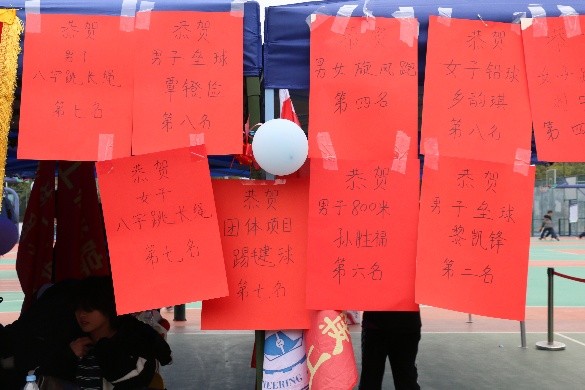 恭贺
男子
八字跳长绳
第七名
恭贺
男子垒球
第八名
恭贺
男女旋风跑
第四名
恭贺
女子铅球
第八名
第四名
恭贺
女子
八字跳长绳
第七名
恭贺
团体项目
踢毽球
第七名
恭贺
男子800米
孙胜楠
第六名
恭贺
男子垒球
黎凯锋
第二名
NEERING